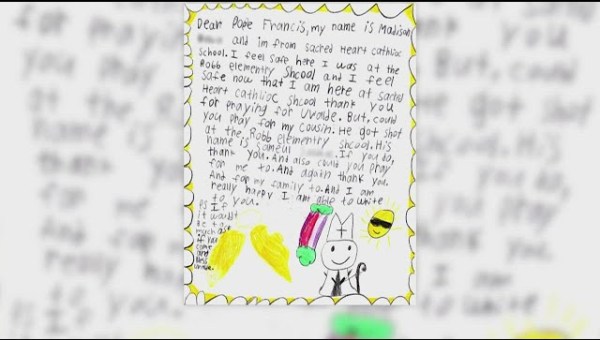 Dear Pope Francis, my name is Madison
and im from sacred Heart cathlioc
school. I feel safe here I was at the
Robb elementry shcool and I feel
safe now that I am here at sacred
Heart cathlioc shcool thank you
for praying for Uvalde. But, could
you pray for my cousin. He got shot
at the Robb elementry shcool. His
name is sameul If you do,
thank you. And also could you pray
for me to. And again thank you.
And for my family to. And I am
really happy I am able to write
to you.
PS If
it wouldn't
be to
much ask
if you
come
and
bless
uvalde.